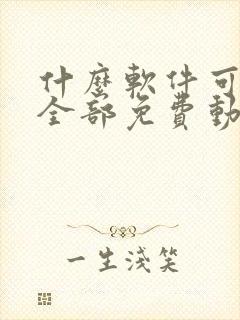 什麼軟件可
全部免費動
一生淺笑